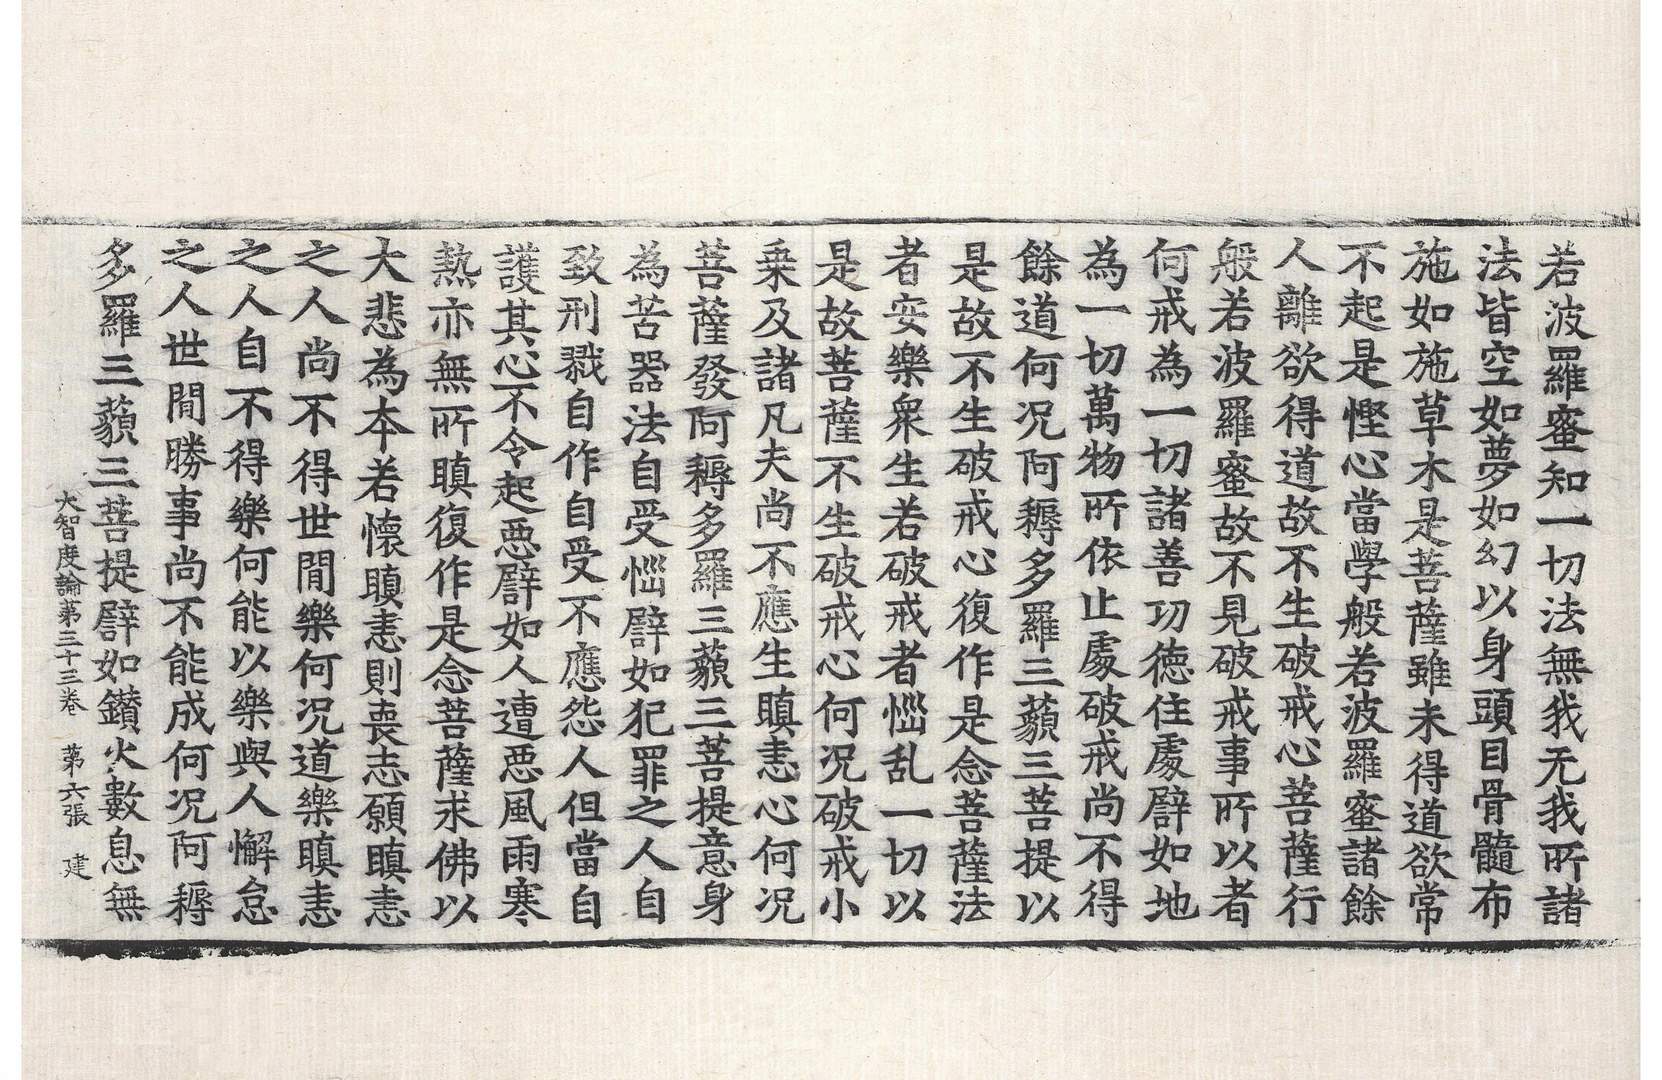 若波羅蜜知一切法無我无我所諸
法皆空如夢如幻以身頭目骨髓布
施如施草木是菩薩雖未得道欲常
不起是慳心當學般若波羅蜜諸餘
人離欲得道故不生破戒心菩薩行
般若波羅蜜故不見破戒事所以者
何戒為一切諸善功德住處譬如地
為一切萬物所依止處破戒尚不得
餘道何況阿耨多羅三藐三菩提以
是故不生破戒心復作是念菩薩法
者安樂衆生若破戒者惱乱一切以
是故菩薩不生破戒心何況破戒小
乗及諸凡夫尚不應生瞋恚心何況
菩薩發阿耨多羅三藐三菩提意身
為苦器法自受惱譬如犯罪之人自
致刑戮自作自受不應怨人但當自
護其心不令起惡譬如人遭惡風雨寒
熱亦無所瞋復作是念菩薩求佛以
大悲為本若懷瞋恚則喪志願瞋恚
之人尚不得世間樂何況道樂瞋恚
之人自不得樂何能以樂與人懈怠
之人世間勝事尚不能成何況阿耨
多羅三藐三菩提譬如鑽火數息無
大智度論第三十三卷 第六張 建